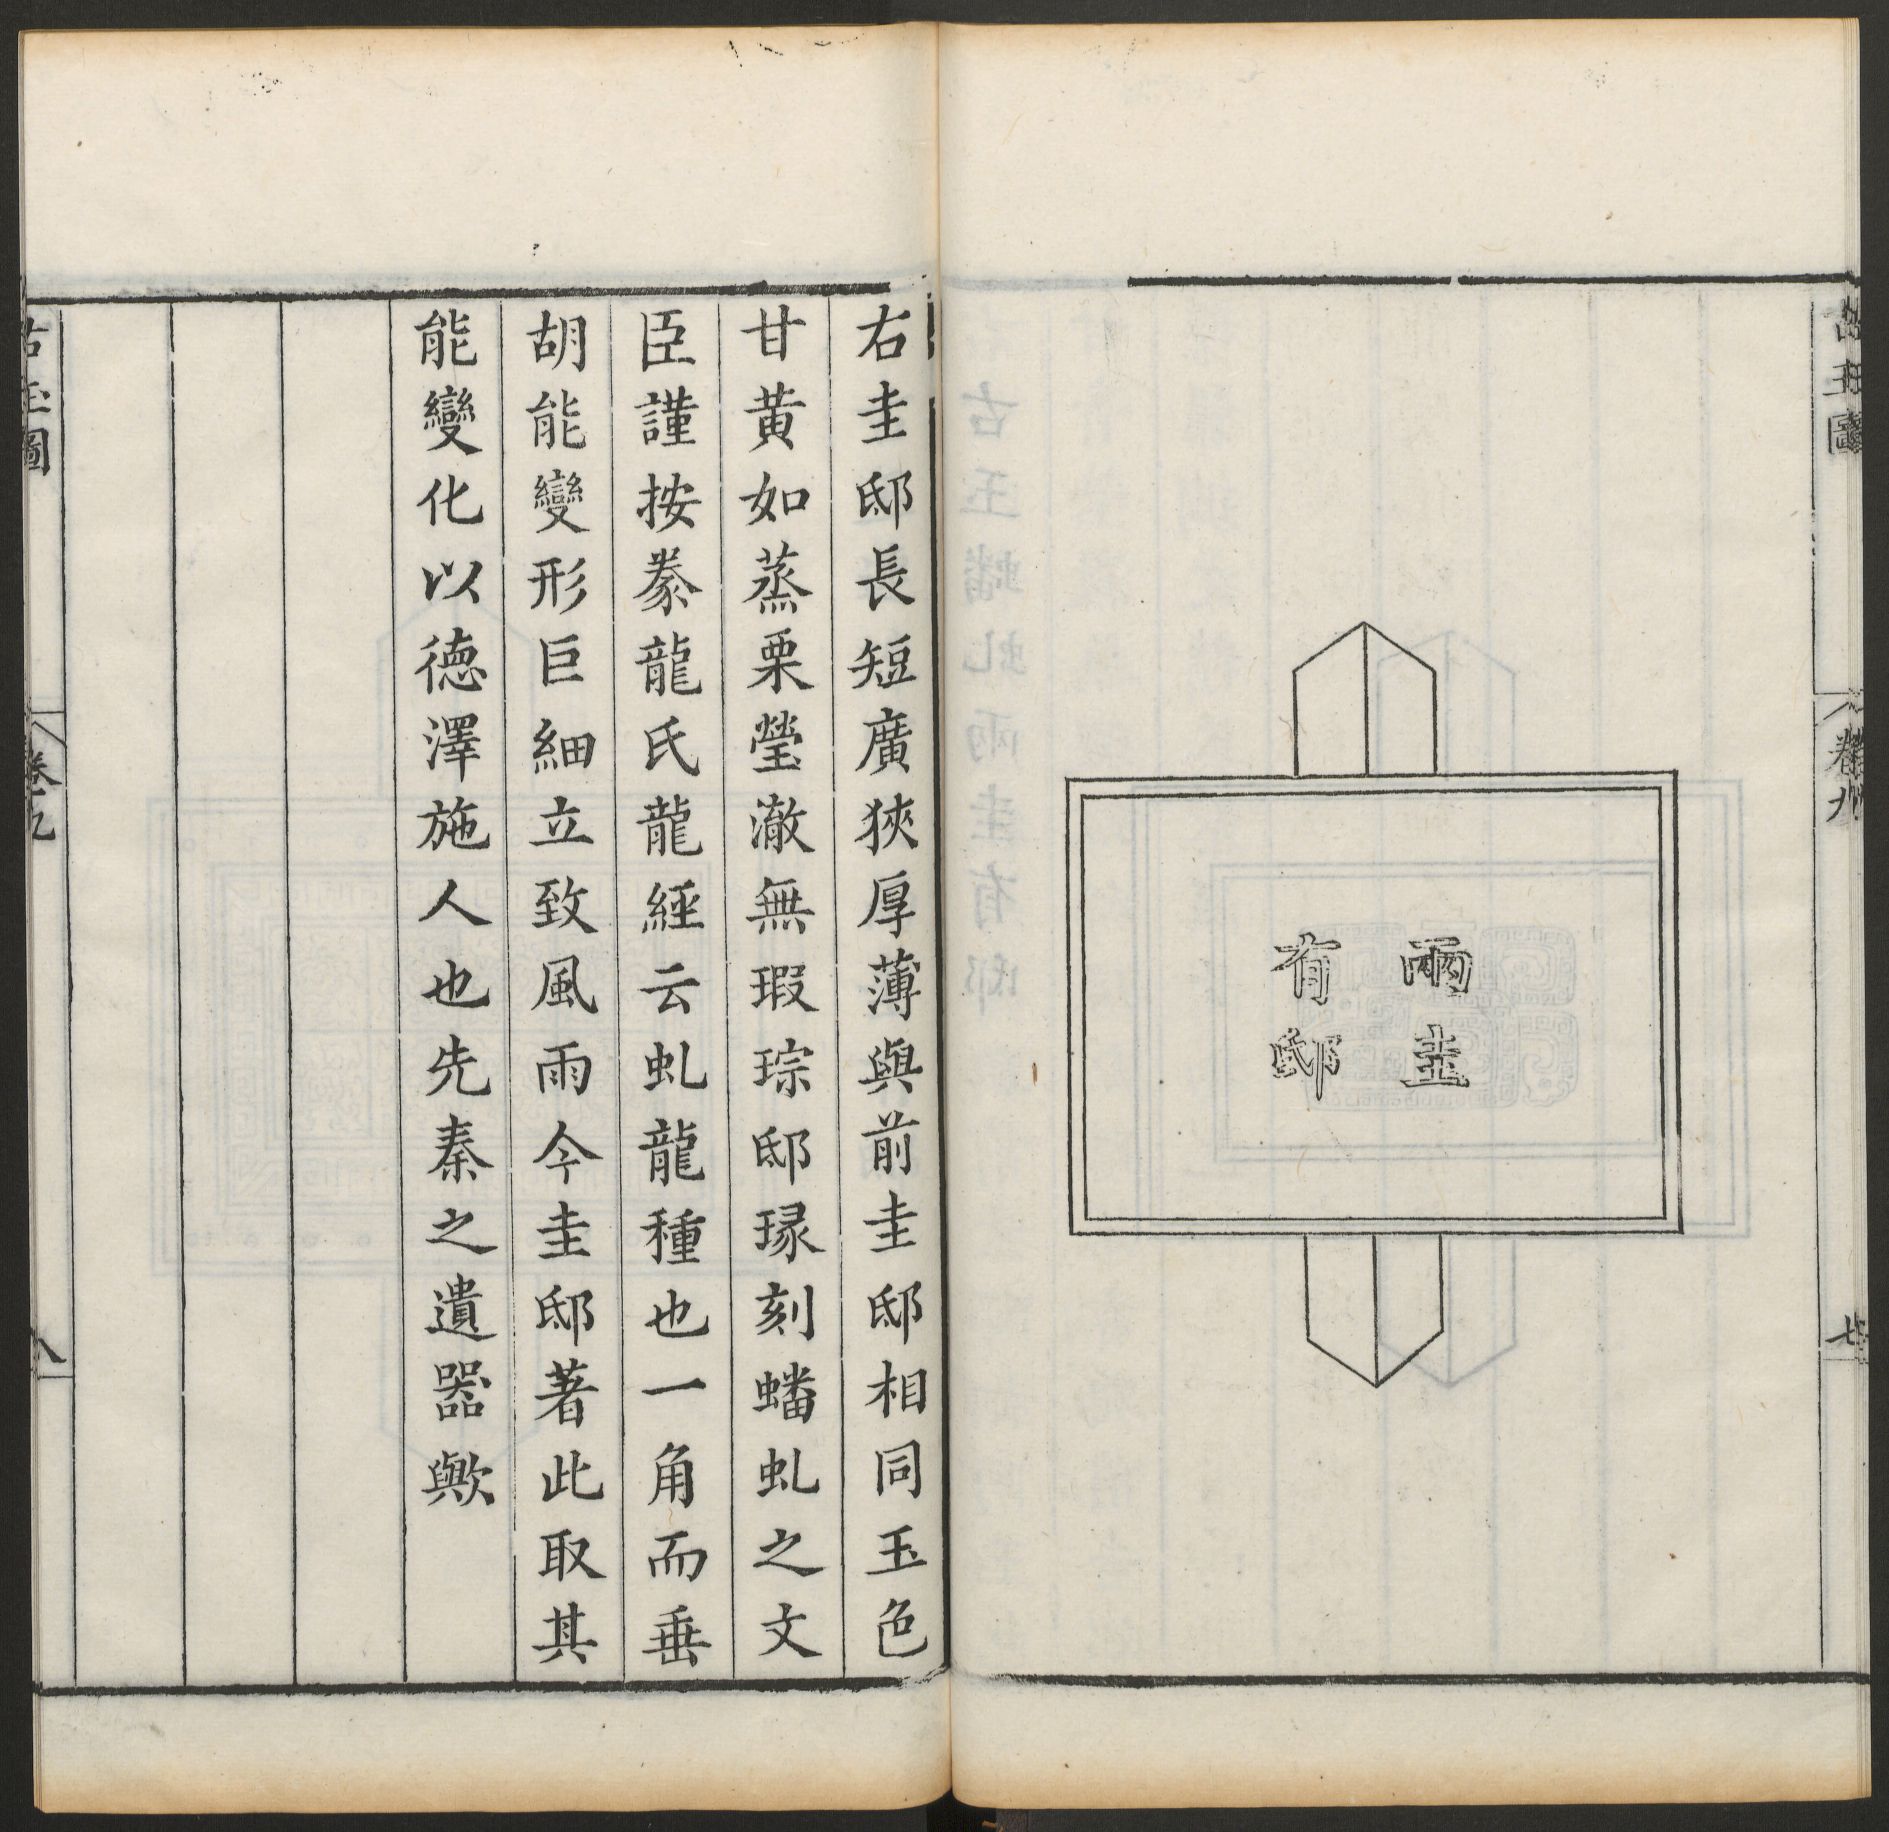 古玉圖
卷九
七
兩圭
有邸
右圭邸長短廣狹厚薄與前圭邸相同玉色
甘黃如蒸栗瑩澈無瑕琮邸瑑刻蟠虬之文
臣謹按豢龍氏龍經云虬龍種也一角而垂
胡能變形巨細立致風雨今圭邸著此取其
能變化以德澤施人也先秦之遺器歟
古玉圖
卷九
八